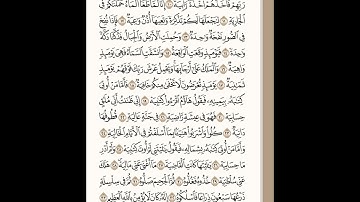 رَبِّهِمْ فَأَخَذَهُمْ أَخْذَةً رَّابِيَةً ١٠ إِنَّا لَمَّا طَغَا ٱلْمَآءُ حَمَلْنَٰكُمْ فِى
ٱلْجَارِيَةِ ١١ لِنَجْعَلَهَا لَكُمْ تَذْكِرَةً وَتَعِيَهَآ أُذُنٌ وَٰعِيَةٌ ١٢ فَإِذَا نُفِخَ
فِى ٱلصُّورِ نَفْخَةٌ وَٰحِدَةٌ ١٣ وَحُمِلَتِ ٱلْأَرْضُ وَٱلْجِبَالُ فَدُكَّتَا دَكَّةً
وَٰحِدَةً ١٤ فَيَوْمَئِذٍ وَقَعَتِ ٱلْوَاقِعَةُ ١٥ وَٱنشَقَّتِ ٱلسَّمَآءُ فَهِىَ يَوْمَئِذٍ
وَاهِيَةٌ ١٦ وَٱلْمَلَكُ عَلَىٰٓ أَرْجَآئِهَا وَيَحْمِلُ عَرْشَ رَبِّكَ فَوْقَهُمْ يَوْمَئِذٍ
ثَمَٰنِيَةٌ ١٧ يَوْمَئِذٍ تُعْرَضُونَ لَا تَخْفَىٰ مِنكُمْ خَافِيَةٌ ١٨ فَأَمَّا مَنْ أُوتِىَ
كِتَٰبَهُۥ بِيَمِينِهِۦ فَيَقُولُ هَآؤُمُ ٱقْرَءُوا۟ كِتَٰبِيَهْ ١٩ إِنِّى ظَنَنتُ أَنِّى مُلَٰقٍ
حِسَابِيَهْ ٢٠ فَهُوَ فِى عِيشَةٍ رَّاضِيَةٍ ٢١ فِى جَنَّةٍ عَالِيَةٍ ٢٢ قُطُوفُهَا
دَانِيَةٌ ٢٣ كُلُوا۟ وَٱشْرَبُوا۟ هَنِيٓـًٔۢا بِمَآ أَسْلَفْتُمْ فِى ٱلْأَيَّامِ ٱلْخَالِيَةِ ٢٤
وَأَمَّا مَنْ أُوتِىَ كِتَٰبَهُۥ بِشِمَالِهِۦ فَيَقُولُ يَٰلَيْتَنِى لَمْ أُوتَ كِتَٰبِيَهْ ٢٥ وَلَمْ أَدْرِ
مَا حِسَابِيَهْ ٢٦ يَٰلَيْتَهَا كَانَتِ ٱلْقَاضِيَةَ ٢٧ مَآ أَغْنَىٰ عَنِّى مَالِيَهْ ٢٨ هَلَكَ
عَنِّى سُلْطَٰنِيَهْ ٢٩ خُذُوهُ فَغُلُّوهُ ٣٠ ثُمَّ ٱلْجَحِيمَ صَلُّوهُ ٣١ ثُمَّ فِى سِلْسِلَةٍ
ذَرْعُهَا سَبْعُونَ ذِرَاعًا فَٱسْلُكُوهُ ٣٢ إِنَّهُۥ كَانَ لَا يُؤْمِنُ بِٱللَّهِ ٱلْعَظِيمِ ٣٣